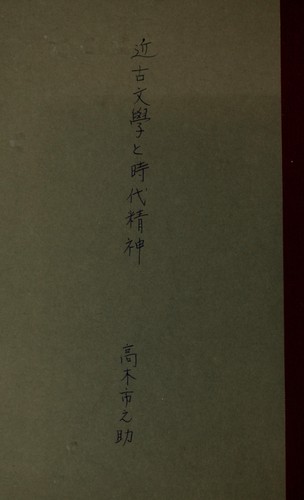 近古文學と時代精神
高木市之助